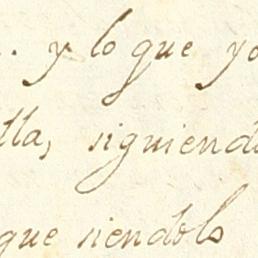 .. y lo que yo
lla, siguiendo
que siendolo